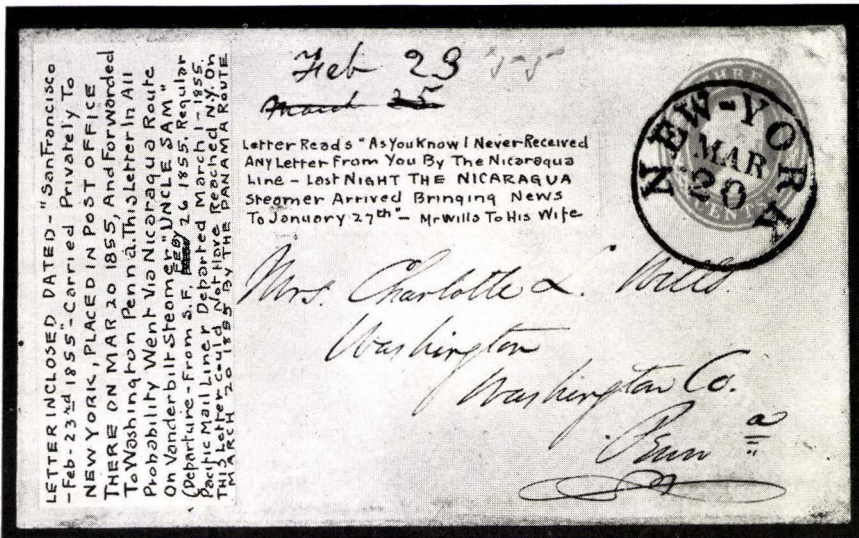 LETTER INCLOSED DATED-"San Francisco
-Feb-23rd 1855"-Carried Privately To
NEW YORK, PLACED IN POST OFFICE
THERE ON MAR 20 1855, And Forwarded
To Washington Penn'a. This Letter In All
Probability Went Via Nicaragua Route
On Vanderbilt Steamer "UNCLE SAM"
(Departure-From S.F. FEBY 26 1855. Regular
Pacific Mail Liner Departed March-1-1855.
This Letter Could Not Have Reached N.Y. On
MARCH 20 1855 BY THE PANAMA ROUTE
Feb 23 '55
March 25
Letter Reads "As You Know I Never Received
ANY Letter From You By The Nicaragua
Line - Last NIGHT THE NICARAGUA
Steamer Arrived Bringing News
To January 27th"- Mr Wills To His Wife
NEW-YORK
MAR
20
Mrs. Charlotte L. Wills.
Washington
Washington Co.
Penn a